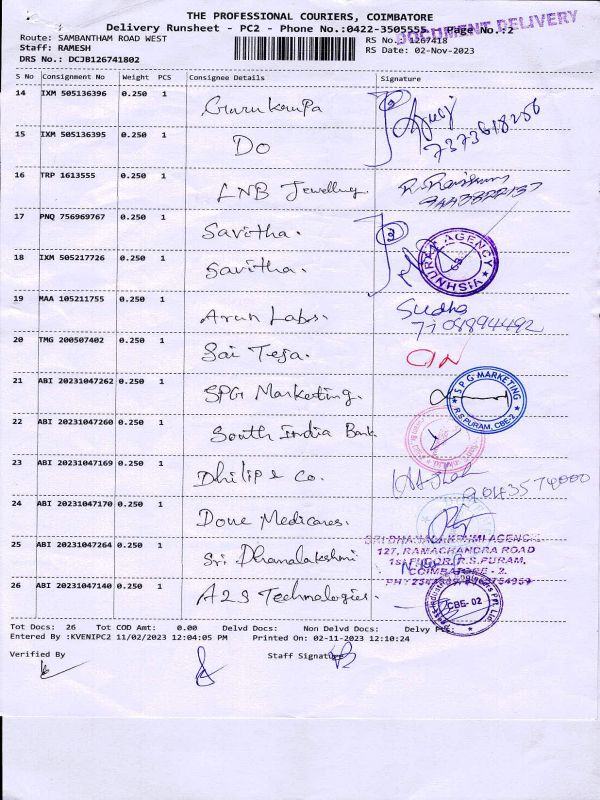 THE PROFESSIONAL COURIERS, COIMBATORE
Delivery Runsheet - PC2 - Phone No.:0422-3505555 Page No.:2
DOCUMENT DELIVERY
Route: SAMBANTHAM ROAD WEST RS No.: 1267418
Staff: RAMESH RS Date: 02-Nov-2023
DRS No.: DCJB126741802
S No Consignment No Weight PCS Consignee Details Signature
14 IXM 505136396 0.250 1 Gurukrupa
7373618256
15 IXM 505136395 0.250 1 Do
16 TRP 1613555 0.250 1 LNB Jewellery.
17 PNQ 756969767 0.250 1 Savitha.
VISHNURAM AGENCY
18 IXM 505217726 0.250 1 Savitha.
19 MAA 105211755 0.250 1 Arun Labs. Sudha
7108894492
20 TMG 200507402 0.250 1 Sai Teja.
21 ABI 20231047262 0.250 1 SPG Marketing. SPG MARKETING
R.S.PURAM, CBE-2
22 ABI 20231047260 0.250 1 South India Bank
23 ABI 20231047169 0.250 1 Dhilip & Co.
24 ABI 20231047170 0.250 1 Done Medicares.
SRI DHANALAKSHMI AGENCIES
25 ABI 20231047264 0.250 1 Sri Dhanalakshmi 127, RAMACHANDRA ROAD
1st FLOOR, R.S.PURAM,
COIMBATORE - 2.
26 ABI 20231047140 0.250 1 A2S Technologies. CBE-02
Tot Docs: 26 Tot COD Amt: 0.00 Delvd Docs: Non Delvd Docs: Delvy Pct:
Entered By :KVENIPC2 11/02/2023 12:04:05 PM Printed On: 02-11-2023 12:10:24
Verified By Staff Signature